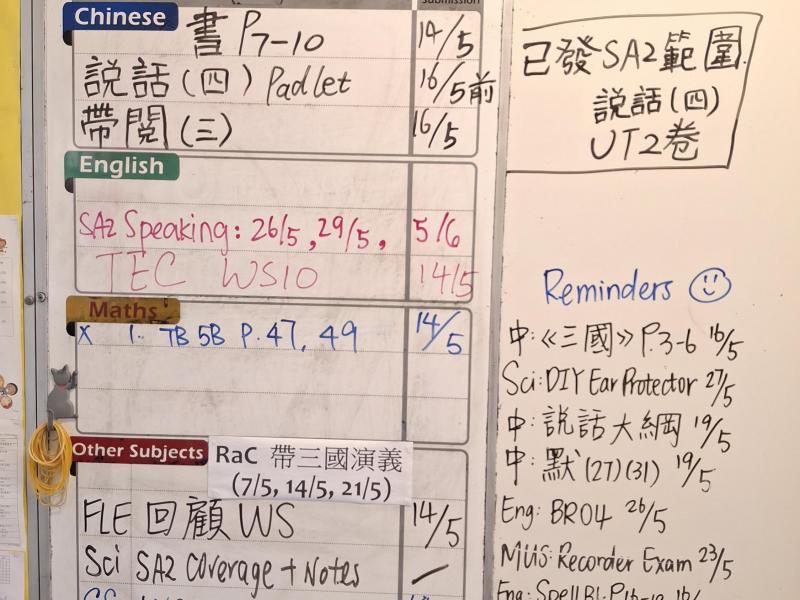 Submission
Chinese
書 P7-10 14/5
説話(四) Padlet 16/5前
帶閱(三) 16/5
English
SA2 Speaking: 26/5, 29/5, 5/6
TEC WS10 14/5
Maths
X 1. TB 5B P. 47, 49 14/5
Other Subjects
RaC 帶三國演義
(7/5, 14/5, 21/5)
FLE 回顧 WS 14/5
Sci SA2 Coverage + Notes
已發SA2範圍
説話(四)
UT2卷
Reminders
中:《三國》P.3-6 16/5
Sci: DIY Ear Protector 27/5
中: 説話大綱 19/5
中: 默(27)(31) 19/5
Eng: BR04 26/5
MUS: Recorder Exam 23/5